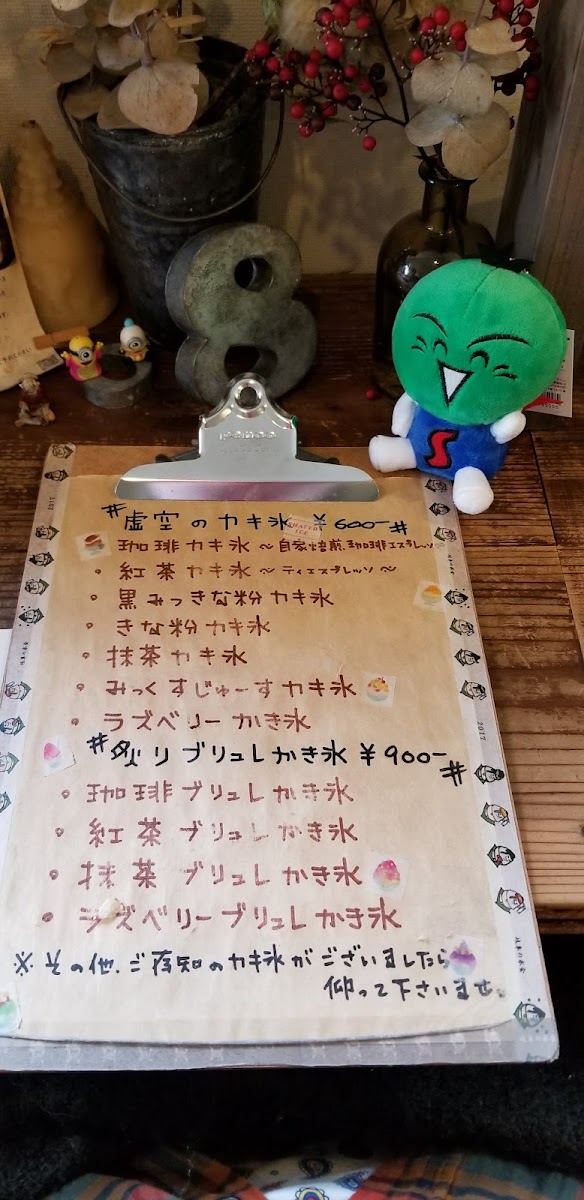 8
#虚空のカキ氷 ¥600-#
珈琲カキ氷〜自家焙煎.珈琲エスプレッソ〜
・紅茶カキ氷〜ティエスプレッソ〜
・黒みつきな粉カキ氷
・きな粉カキ氷
・抹茶カキ氷
・みっくすじゅーすカキ氷
・ラズベリーかき氷
#炙りブリュレかき氷 ¥900-#
・珈琲ブリュレかき氷
・紅茶ブリュレかき氷
・抹茶ブリュレかき氷
・ラズベリーブリュレかき氷
※その他.ご存知のカキ氷がございましたら
仰って下さいませ。
2017
S